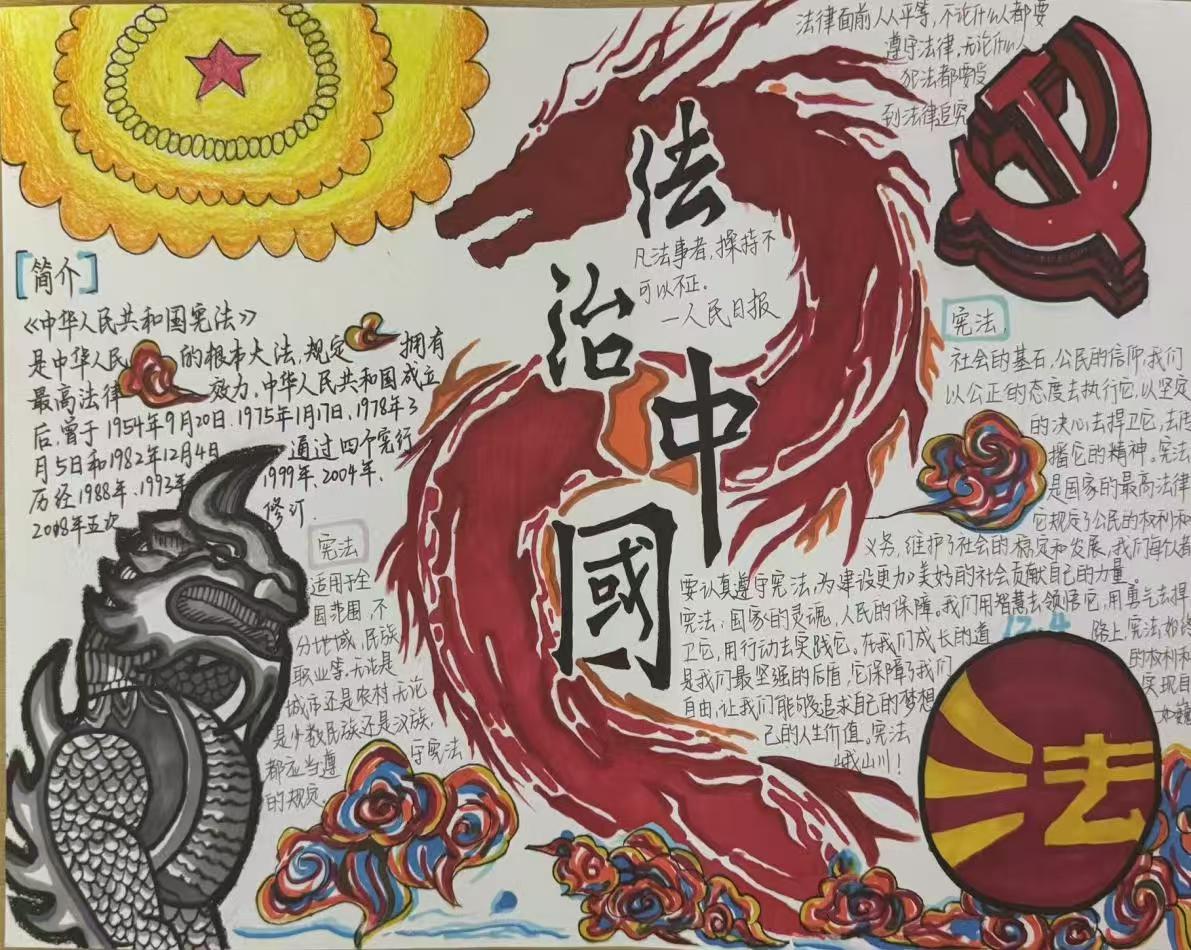 法律面前人人平等,不论什么人都要
遵守法律,无论什么人
犯法都要受
到法律追究
法
治
中
國
凡法事者,操持不
可以不正.
—人民日报
[简介]
《中华人民共和国宪法》
是中华人民 的根本大法,规定 拥有
最高法律 效力,中华人民共和国成立
后,曾于1954年9月20日、1975年1月17日、1978年3
月5日和1982年12月4日 通过四个宪行
历经1988年、1993年 1999年、2004年、
2018年五次 修订.
宪法
适用于全
国范围,不
分地域,民族
职业等,无论是
城市还是农村,无论
是少数民族还是汉族,
都应当遵 守宪法
的规定.
宪法.
社会的基石,公民的信仰,我们
以公正的态度去执行它,以坚定
的决心去捍卫它,去传
播它的精神。宪法
是国家的最高法律
它规定了公民的权利和
义务,维护了社会的稳定和发展,我们每个人都
要认真遵守宪法,为建设更加美好的社会贡献自己的力量。
宪法,国家的灵魂,人民的保障。我们用智慧去领悟它,用勇气去捍
卫它,用行动去实践它,在我们成长的道 12.4 路上,宪法始终
是我们最坚强的后盾,它保障了我们 的权利和
自由,让我们能够追求自己的梦想 实现自
己的人生价值。宪法 如巍
峨山川!
法